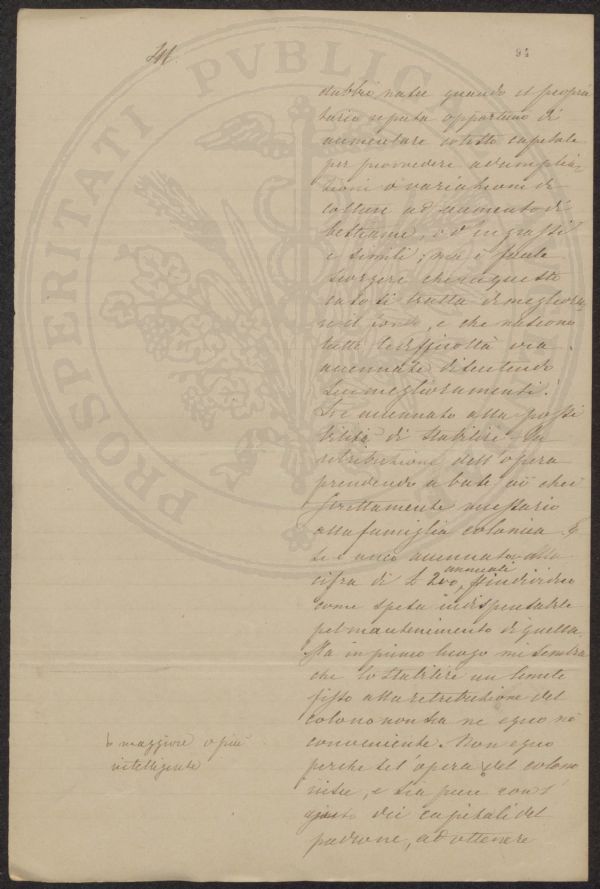 94
dubbio nasce quando il proprie
tario reputa opportuno di
aumentare cotesto capitale
per provvedere ad amplia-
zioni o variazioni di
colture ad aumento di
bestiame, o d'ingrassi
e simili; ma è facile
scorgere che in questo
caso si tratta di migliora
re il fondo, e che nascono
tutte le difficoltà già
accennate discutendo
sui miglioramenti.
Si è accennato alla possi
bilità di stabilire la
retribuzione dell'opera
prendendo a base ciò che è
strettamente necessario
alla famiglia colonica e
si è anco accennato alla
cifra di £ 200, annuali
individuo
come spesa indispensabile
pel mantenimento di quella.
Ma in primo luogo mi sembra
che lo stabilire un limite
fisso alla retribuzione del
colono non sia ne equo nè
conveniente. Non equo
perche se l'opera del colono
riesce, e sia pure con l'
ajuto dei capitali del
padrone, ad ottenere
maggiore o più
intelligente
PROSPERITATI PVBLICAE